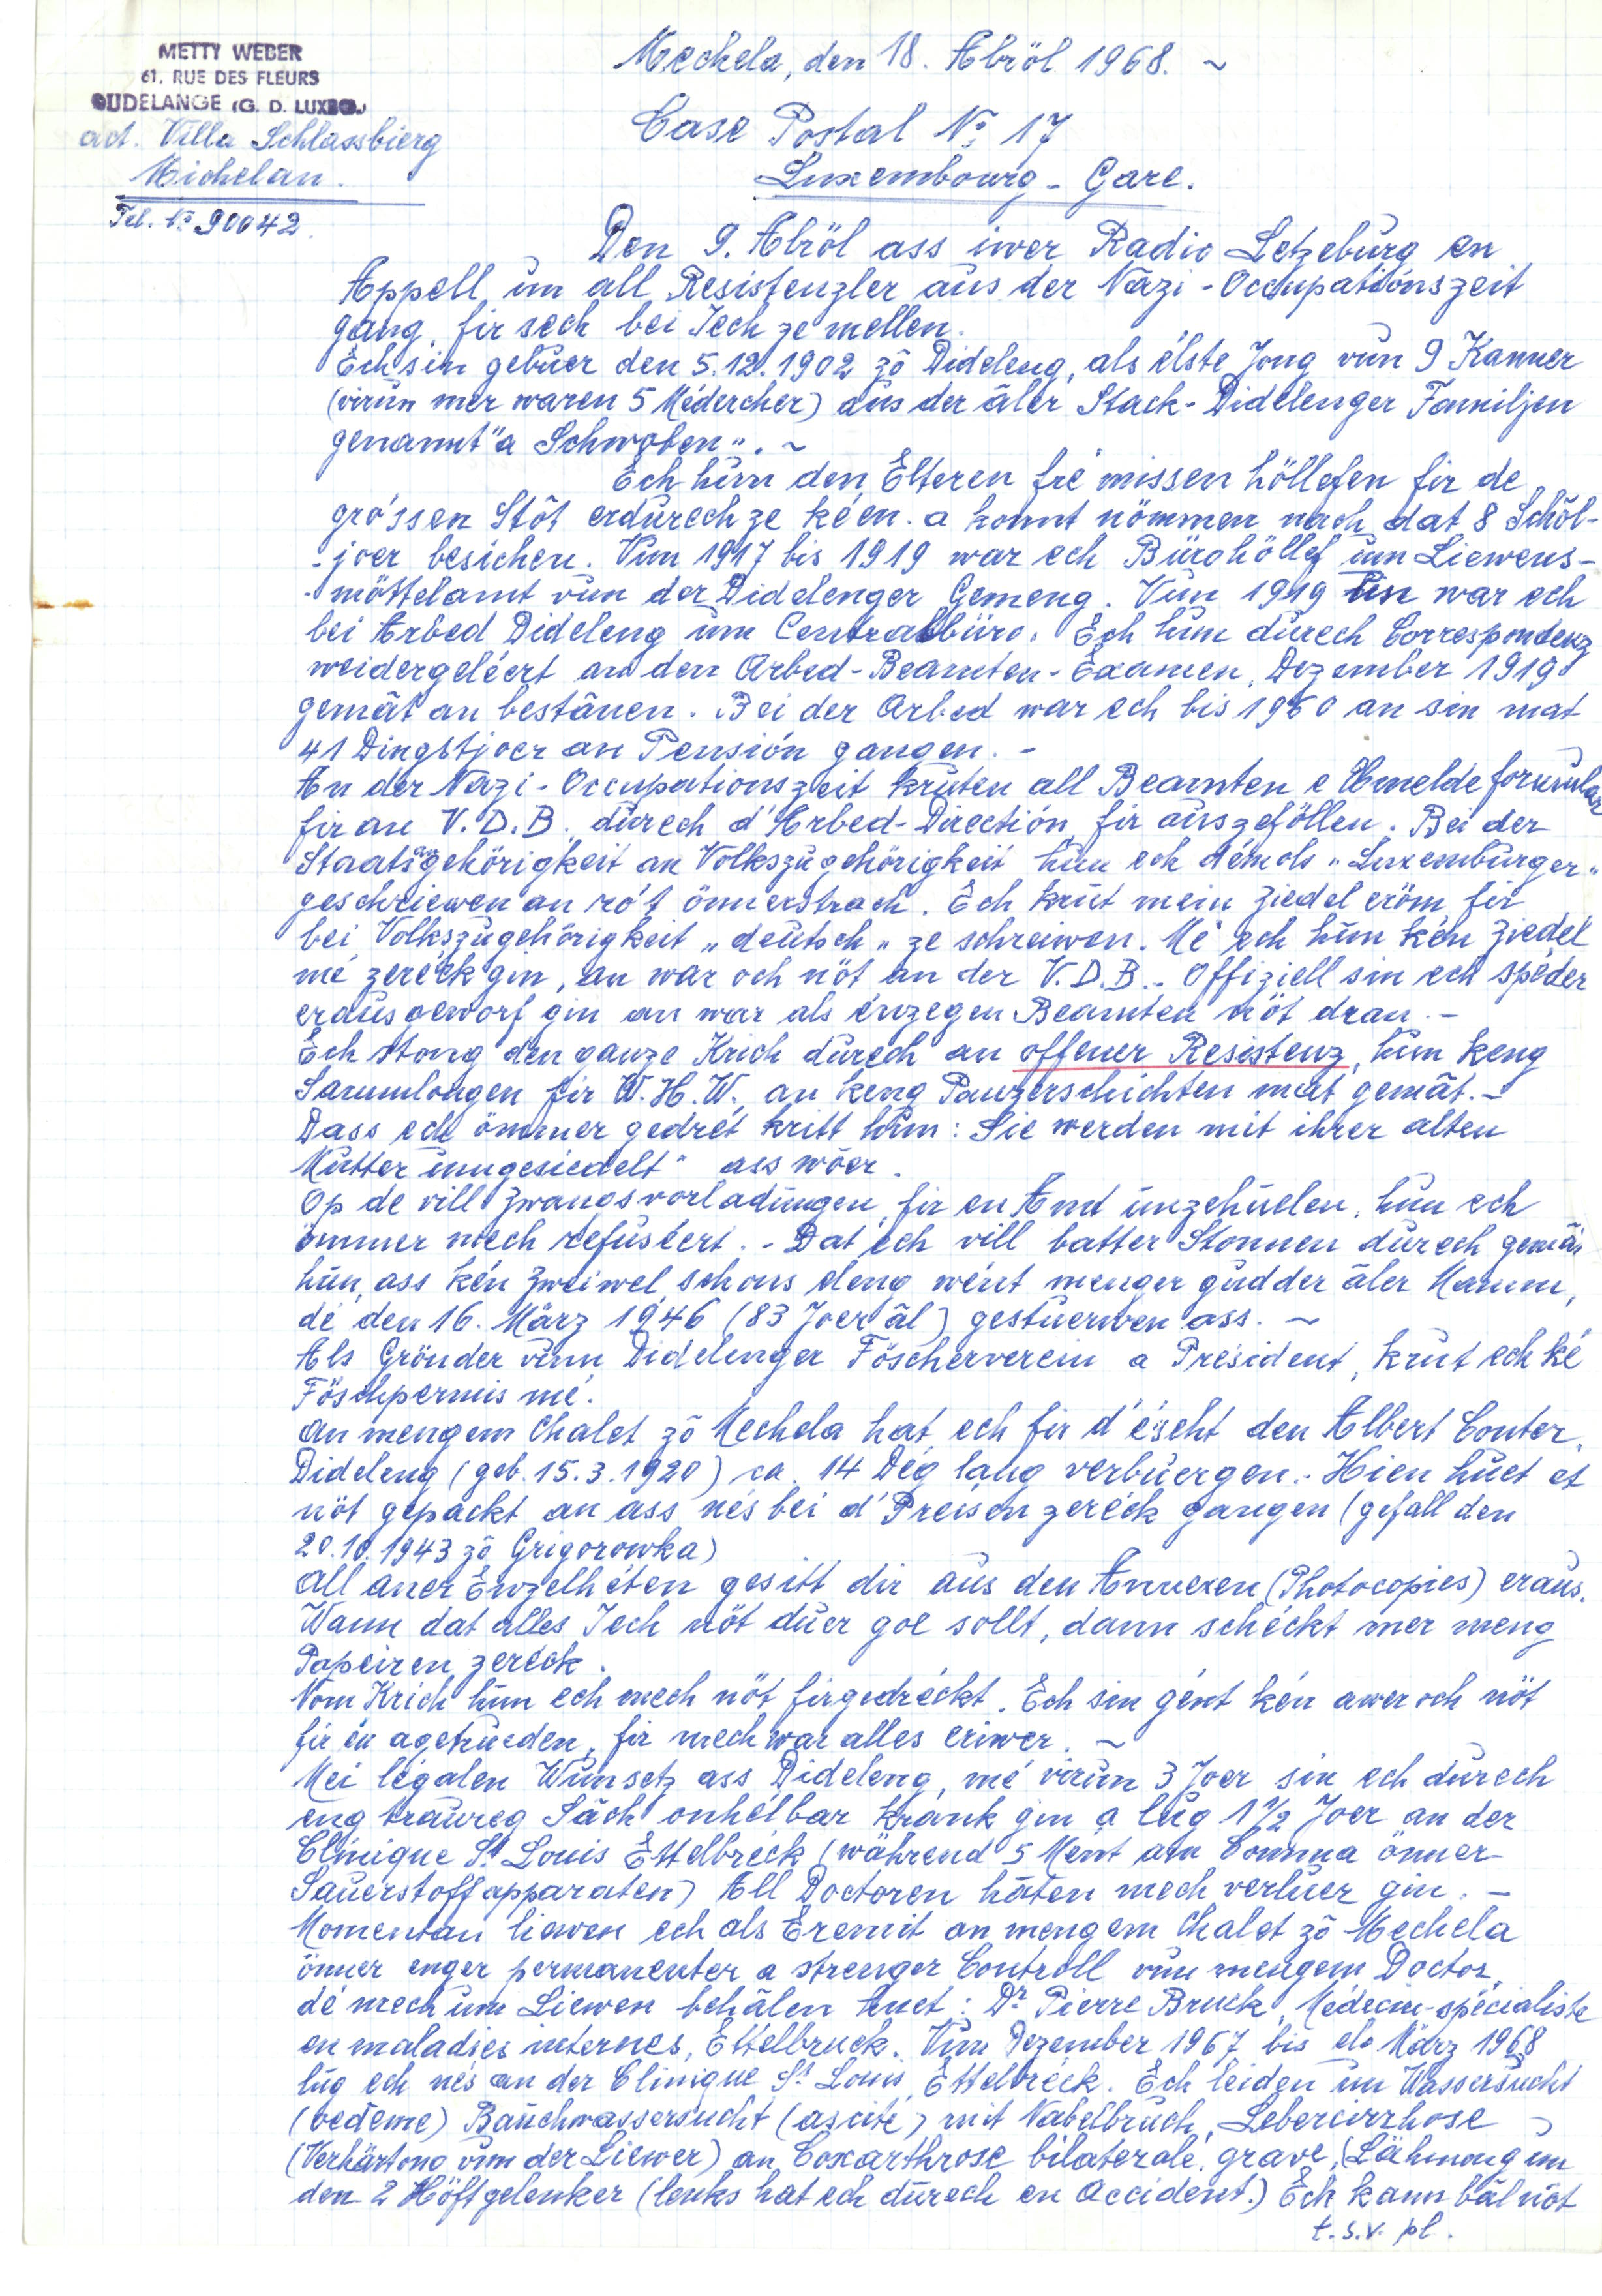 METTY WEBER
61, RUE DES FLEURS
DUDELANGE (G. D. LUXBG.)
act. Villa Schlassbierg
Michelau.
Tel. No 90042.
Mechela, den 18. Abröl 1968. ~
Case Postal No 17
Luxembourg - Gare.
Den 9. Abröl ass iwer Radio Letzeburg en
Appell un all Resistenzler aus der Nazi - Occupatiónszeit
gang, fir sech bei Iech ze mellen.
Ech sin gebuer den 5.12.1902 zö Dideleng, als élste Jong vun 9 Kanner
(virun mer waren 5 Médercher) aus der äler Stack - Didelenger Familjen
genannt "a Schwoben". ~
Ech hun den Elteren fré missen höllefen fir de
gróssen Stöt erdurech ze kéen. a konnt nömmen nach dat 8 Schöl-
-joer besichen. Vun 1917 bis 1919 war ech Bürohöllef um Liewens-
-möttelamt vun der Didelenger Gemeng. Vun 1919 un war ech
bei Arbed Dideleng um Centralbüro. Ech hun durech Correspondenz
weidergeléert an den Arbed - Beamten - Examen, Dezember 1919
gemät an bestänen. Bei der Arbed war ech bis 1960 an sin mat
41 Dingstjoer an Pensión gangen. -
An der Nazi - Occupationszeit kruten all Beamten e Umeldeformular
fir an V. D. B. durech d'Arbed-Direction, fir auszeföllen. Bei der
Staatsangehörigkeit an Volkszugehörigkeit hun ech démols "Luxemburger"
geschriewen an rót önnerstrach. Ech krut mein Ziedel eröm fir
bei Volkszugehörigkeit "deutsch" ze schreiwen. Mé ech hun kén Ziedel
mé zeréck gin, an war och nöt an der V. D. B. - Offiziell sin ech spéder
erausgeworf gin an war als énzegen Beamten nöt dran. -
Ech stong den ganze Krich durech an offener Resistenz, hun keng
Sammlongen fir W. H. W. an keng Panzerschichten mat gemät. -
Dass ech ömmer gedrét kritt hun: Sie werden mit ihrer alten
Mutter umgesiedelt" ass wöer.
Op de vill Zwangsvorladungen, fir en Amt unzehuelen, hun ech
ömmer mech refuséert. - Dat ech vill batter Stonnen durech gemät
hun, ass kén Zweiwel, schons eleng wént menger gudder äler Mamm,
dé den 16. März 1946 (83 Joer äl) gestuerwen ass. ~
Als Grönder vum Didelenger Föscherverein a President, krut ech ké
Föschpermis mé.
An mengem Chalet zö Mechela hat ech fir d'éscht den Albert Conter,
Dideleng (geb. 15.3.1920) ca. 14 Dég lang verbuergen. - Hien huet et
nöt gepackt an ass nés bei d'Preisen zeréck gangen (gefall den
20.10.1943 zö Grigorowka)
All aner Enzelhéten gesitt dir aus den Annexen (Photocopies) eraus.
Wann dat alles Iech nöt duer goe sollt, dann schéckt mer meng
Papeiren zeréck.
Vom Krich hun ech mech nöt firgedréckt. Ech sin gént kén awer och nöt
fir én agetrueden, fir mech war alles eriwer. ~
Mei légalen Wunsetz ass Dideleng, mé virun 3 Joer sin ech durech
eng traureg Säch onhélbar krank gin a lug 1 1/2 Joer an der
Clinique St Louis Ettelbréck (während 5 Ment am Comma önner
Sauerstoffapparaten) All Doctoren häten mech verluer gin. -
Momentan liewen ech als Eremit an mengem Chalet zö Mechela
önner enger permanenter a strenger Controll vun mengem Doctor,
dé mech um Liewen behälen huet: Dr Pierre Bruck, Médecin-spécialiste
en maladies internes, Ettelbruck. Vun Dezember 1967 bis elo März 1968
lug ech nés an der Clinique St Louis, Ettelbréck. Ech leiden un Wassersucht
(oedème) Bauchwassersucht (ascite) mit Nabelbruch, Lebercirrhose
(Verhärtong vun der Liewer) an Coxarthrose bilaterale, grave, (Lähmong un
den 2 Höftgelenker (lenks hat ech durech en Accident.) Ech kann bäl nöt
t. s. v. pl.